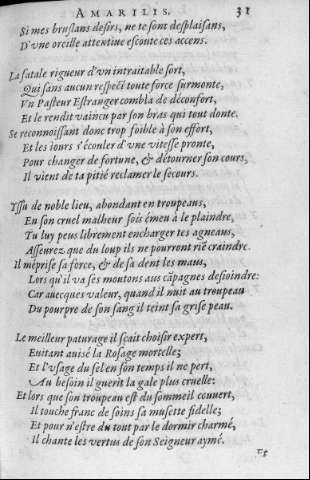 AMARILIS. 31
Si mes bruslans desirs, ne te sont desplaisans,
D'vne oreille attentiue escoute ces accens.
La fatale rigueur d'vn intraitable sort,
Qui sans aucun respect toute force surmonte,
Vn Pasteur Estranger combla de déconfort,
Et le rendit vaincu par son bras qui tout donte.
Se reconnoissant donc trop foible à son effort,
Et les iours s'écouler d'vne vitesse pronte,
Pour changer de fortune, & détourner son cours,
Il vient de ta pitié reclamer le secours.
Yssu de noble lieu, abondant en troupeaus,
Eu son cruel malheur sois émeu à le plaindre,
Tu luy peus librement encharger tes agneaus,
Asseurez que du loup ils ne pourront riẽ craindre.
Il méprise sa force, & de sa dent les maus,
Lors qu'il va ses moutons aus cãpagnes desioindre:
Car auecques valeur, quand il nuit au troupeau
Du pourpre de son sang il teint sa grise peau.
Le meilleur paturage il sçait choisir expert,
Euitant auisé la Rosage mortelle;
Et l'vsage du sel en son temps il ne pert,
Au besoin il guerit la gale plus cruelle:
Et lors que son troupeau est du sommeil couuert,
Il touche franc de soins sa musette fidelle;
Et pour n'estre du tout par le dormir charmé,
Il chante les vertus de son Seigneur aymé.